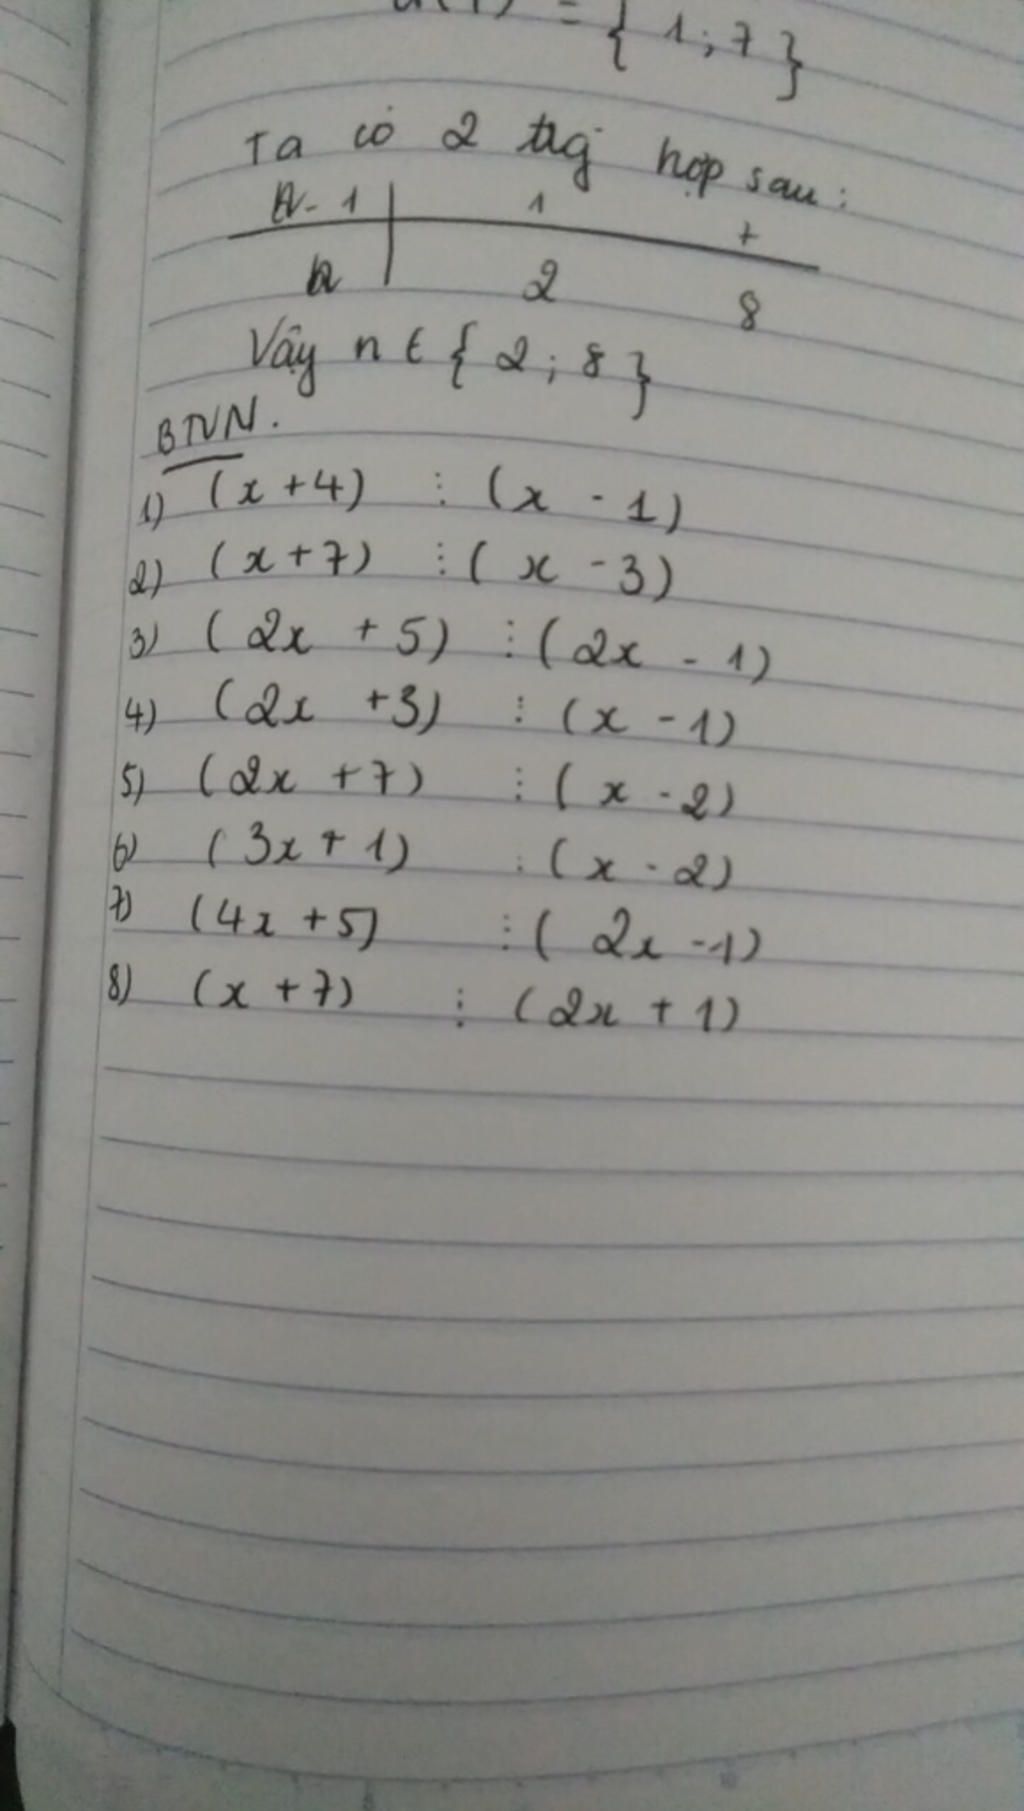 = { 1 ; 7 }
Ta có 2 trg hợp sau :
n - 1 1 7
n 2 8
Vậy n ∈ { 2 ; 8 }
BTVN.
1) (x + 4) ⋮ (x - 1)
2) (x + 7) ⋮ ( x - 3)
3) ( 2x + 5) ⋮ ( 2x - 1)
4) (2x + 3) ⋮ (x - 1)
5) (2x + 7) ⋮ ( x - 2)
6) ( 3x + 1) ⋮ (x - 2)
7) (4x + 5) ⋮ ( 2x - 1)
8) (x + 7) ⋮ (2x + 1)